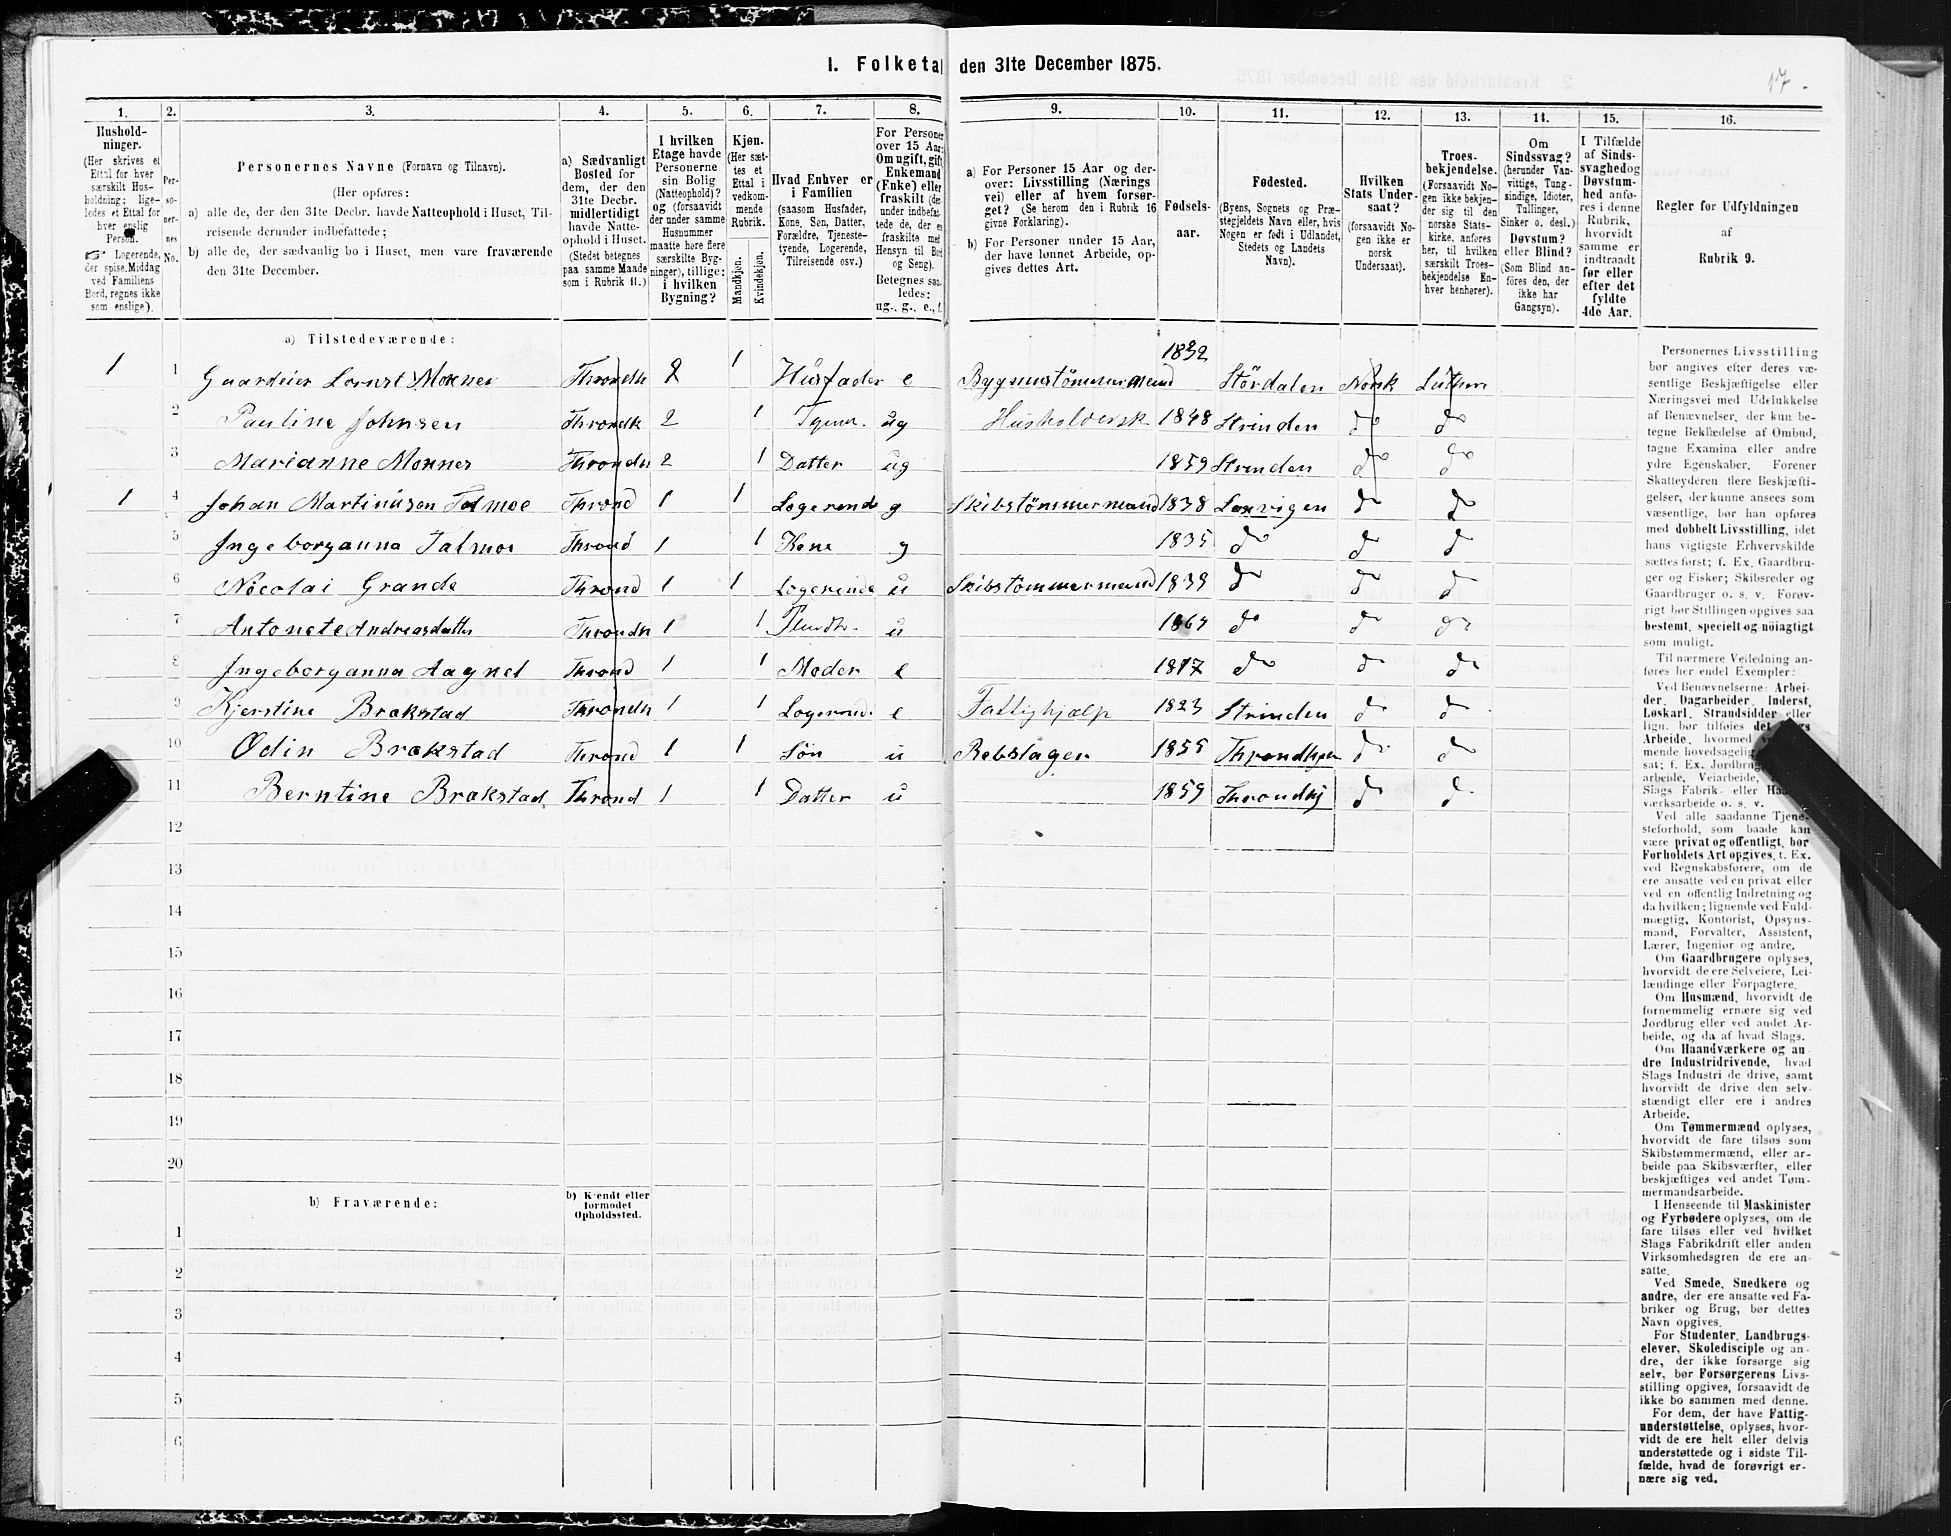 1. Folketal den 31te December 1875.
17
1. 2. 3. 4. 5. 6. 7. 8. 9. 10. 11. 12. 13. 14. 15. 16.
Hushold-
ninger.
(Her skrives et
Ettal for hver
særskilt Hus-
holdning; lige-
ledes et Ettal for
hver enslig
Person.
Logerende,
der spise Middag
ved Familiens
Bord, regnes ikke
som enslige).
Per-
so-
ner-
nes
No.
Personernes Navne (Fornavn og Tilnavn).
(Her opføres:
a) alle de, der den 31te Decbr. havde Natteophold i Huset, Til-
reisende derunder indbefattede;
b) alle de, der sædvanlig bo i Huset, men vare fraværende
den 31te December.
a) Sædvanligt
Bosted for
dem, der den
31te Decbr.
midlertidigt
havde Natte-
ophold i Huset.
(Stedet betegnes
paa samme Maade
som i Rubrik 11.)
I hvilken
Etage havde
Personerne
sin Bolig
(Natteophold)?
og (forsaavidt
der under samme
Husnummer
maatte høre flere
særskilte Byg-
ninger), tillige:
i hvilken
Bygning?
Kjøn.
(Her sæt-
tes et
Ettal i
vedkom-
mende
Rubrik.
Mandkjøn.
Kvindekjøn.
Hvad Enhver er
i Familien
(saasom Husfader,
Kone, Søn, Datter,
Forældre, Tjeneste-
tyende, Logerende,
Tilreisende osv.)
For Personer
over 15 Aar:
Om ugift, gift
Enkemand
(Enke) eller
fraskilt (der-
under indbefat-
tede de, der ere
fraskilte med
Hensyn til Bord
og Seng).
Betegnes saa-
ledes:
ug., g., e., f.
a) For Personer 15 Aar og der-
over: Livsstilling (Nærings
vei) eller af hvem forsør-
get? (Se herom den i Rubrik 16
givne Forklaring).
b) For Personer under 15 Aar,
der have lønnet Arbeide, op-
gives dettes Art.
Fødsels-
aar.
Fødested.
(Byens, Sognets og Præ-
stegjeldets Navn eller, hvis
Nogen er født i Udlandet,
Stedets og Landets
Navn).
Hvilken
Stats Under-
saat?
(forsaavidt No-
gen ikke er
norsk
Undersaat).
Troes-
bekjendelse.
(Forsaavidt No-
gen ikke bekjen-
der sig til den
norske Stats-
kirke, anføres
her, til hvilken
særskilt Troes-
bekjendelse En-
hver henhører).
Om
Sindssvag?
(herunder Van-
vittige, Tung-
sindige, Idioter,
Tullinger,
Sinker o. desl.)
Døvstum?
eller Blind?
(Som Blind an-
føres den, der
ikke har
Gangsyn).
I Tilfælde
af Sinds-
svaghed og
Døvstum-
hed anfø-
res i denne
Rubrik,
hvorvidt
samme er
indtraadt
før eller
efter det
fyldte
4de Aar.
Regler for Udfyldningen
af
Rubrik 9.
a) Tilstedeværende:
1 1 Gaardeier Lornst Monner Throndh 2 1 Husfader e Bygnustømmermand 1832 Stördalen Norsk Luthers
2 Pauline Johnsen Throndh 2 1 ug Husholdersk 1848 Strinden do do
3 Marianne Monner Throndh 2 1 Datter ug 1859 Strinden do do
1 4 Johan Martinusen Talmoe Thrond 1 1 Logerende g Skibstømmermand 1838 Lexvigen do do
5 Ingeborganna Talmoe Thrond 1 1 Kone g 1835 do do do
6 Nicolai Grande Thrond 1 1 Logerende u Skibstømmermand 1839 do do do
7 Antonete Andreasdatter Throndh 1 1 u do do do
8 Ingeborganna Aagnet Thrond 1 1 Moder e 1817 do do do
9 Kjerstine Brækstad Throndh 1 1 Logerende e Fattighjælp 1823 Strinden do do
10 Odin Brækstad Thrond 1 1 Søn u Rebslager 1855 Throndhjem do do
11 Berntine Brækstad Thrond 1 1 Datter u 1859 Throndhj do do
12
13
14
15
16
17
18
19
20
b) Fraværende:
b) Kjendt eller
formodet
Opholdssted.
1
2
3
4
5
6
Personernes Livsstilling
bør angives efter deres væ-
sentlige Beskjæftigelse eller
Næringsvei med Udelukkelse
af Benævnelser, der kun be-
tegne Beklædelse af Ombud,
tagne Examina eller andre
ydre Egenskaber. Forener
Skatteyderen flere Beskjæfti-
gelser, der kunne ansees som
væsentlige, bør han opføres
med dobbelt Livsstilling, idet
hans vigtigste Erhvervskilde
sættes først; f. Ex. Gaardbru-
ger og Fisker; Skibsreder og
Gaardbruger o. s. v. Forøv-
rigt bør Stillingen opgives saa
bestemt, specielt og nöiagtigt
som muligt.
Til nærmere Veiledning an-
føres her endel Exempler:
Ved Benævnelserne: Arbei-
der, Dagarbeider, Inderst,
Løskarl, Strandsidder eller
lign. bør tilføies det Slags
Arbeide, hvormed
mende hovedsagelig
sat; f. Ex. Jordbrug
arbeide, Veiarbeide,
Slags Fabrik- eller Haand-
værksarbeide o. s. v.
Ved alle saadanne Tjene-
steforhold, som baade kan
være privat og offentligt, bør
Forholdets Art opgives, t. Ex.
ved Regnskabsførere, om de
ere ansatte ved en privat eller
ved en offentlig Indretning og
da hvilken; lignende ved Fuld-
mægtig, Kontorist, Opsyns-
mand, Forvalter, Assistent,
Lærer, Ingeniør og andre.
Om Gaardbrugere oplyses,
hvorvidt de ere Selveiere, Lei-
lændinge eller Forpagtere.
Om Husmænd, hvorvidt de
fornemmelig ernære sig ved
Jordbrug eller ved andet Ar-
beide, og da af hvad Slags.
Om Haandværkere og an-
dre Industridrivende, hvad
Slags Industri de drive, samt
hvorvidt de drive den selv-
stændigt eller ere i andres
Arbeide.
Om Tømmermænd oplyses,
hvorvidt de fare tilsøs som
Skibstømmermænd, eller ar-
beide paa Skibsværfter, eller
beskjæftiges ved andet Tøm-
mermandsarbeide.
I Henseende til Maskinister
og Fyrbødere oplyses, om de
fare tilsøs eller ved hvilket
Slags Fabrikdrift eller anden
Virksomhedsgren de ere an-
satte.
Ved Smede, Snedkere og
andre, der ere ansatte ved Fa-
briker og Brug, bør dettes
Navn opgives.
For Studenter, Landbrugs-
elever, Skoledisciple og an-
dre, der ikke forsørge sig
selv, bør Forsørgerens Livs-
stilling opgives, forsaavidt de
ikke bo sammen med denne.
For dem, der have Fattig-
understøttelse, oplyses, hvor-
vidt de ere helt eller delvis
understøttede og i sidste Til-
fælde, hvad de forøvrigt er-
nære sig ved.